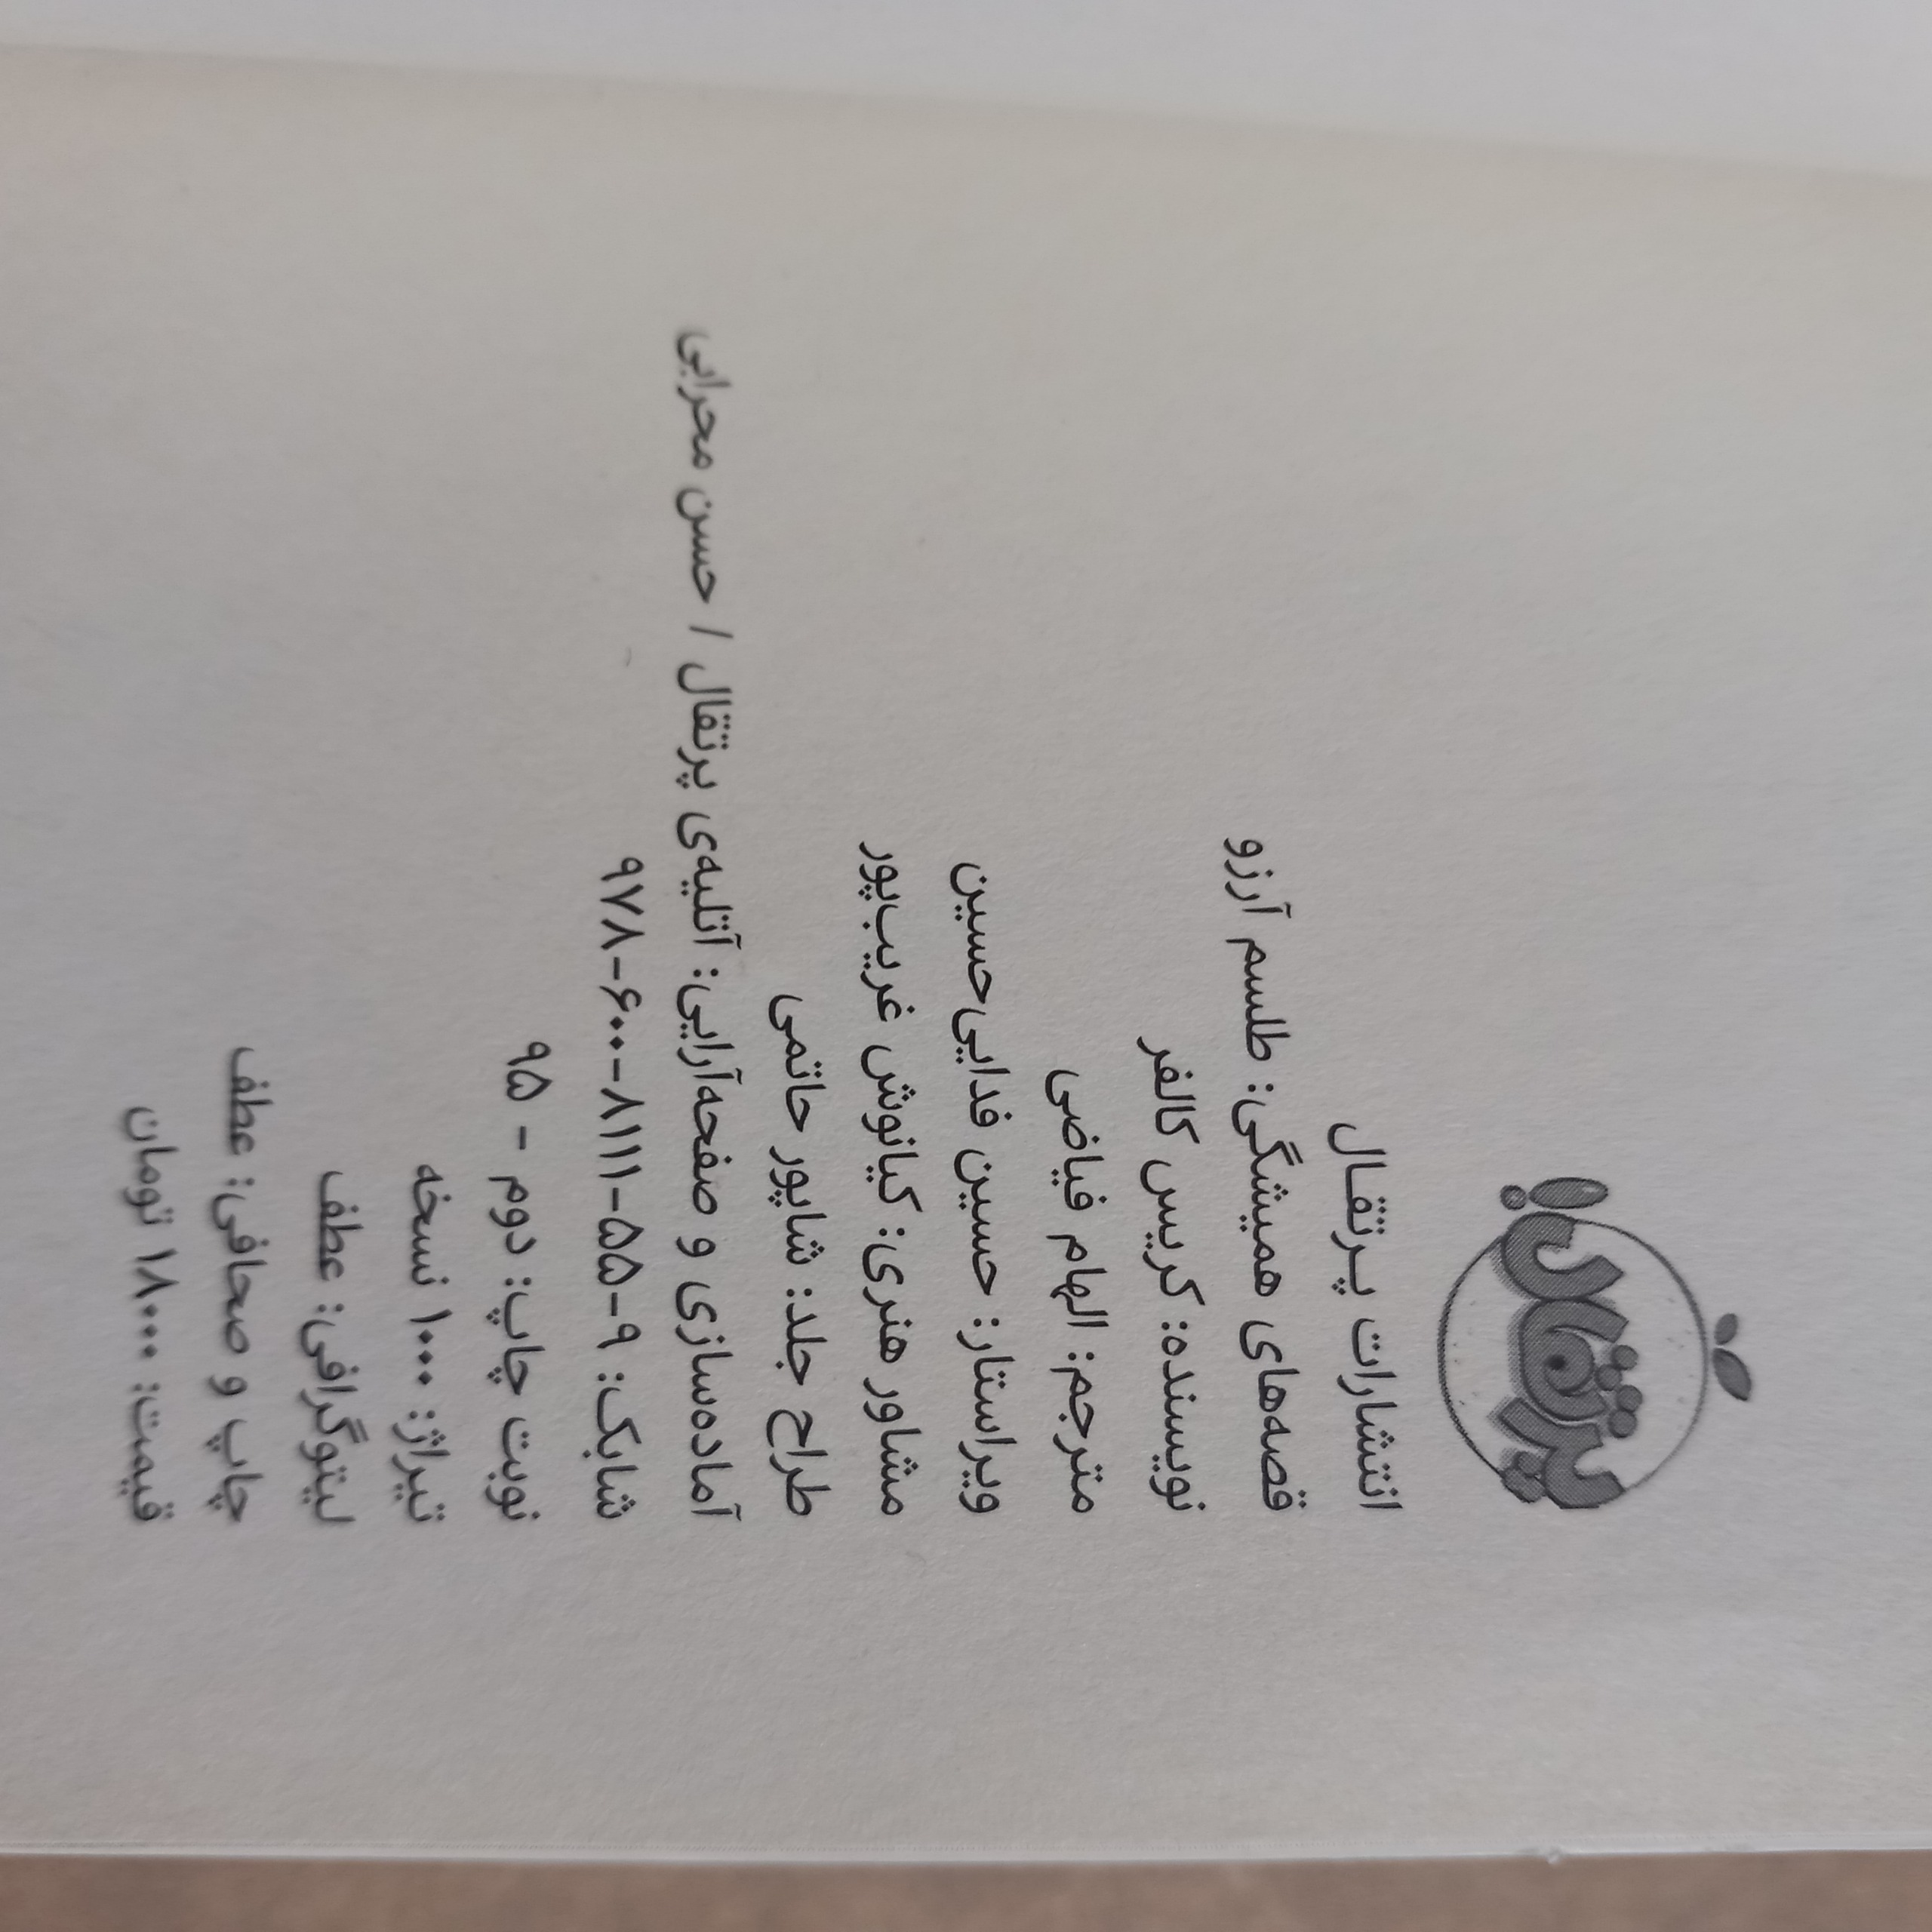 پرتقال
انتشارات پرتقال
قصه‌های همیشگی: طلسم آرزو
نویسنده: کریس کالفر
مترجم: الهام فیاضی
ویراستار: حسین فدایی‌حسین
مشاور هنری: کیانوش غریب‌پور
طراح جلد: شاپور حاتمی
آماده‌سازی و صفحه‌آرایی: آتلیه‌ی پرتقال / حسن محرابی
شابک: ۹-۵۵-۸۱۱۱-۶۰۰-۹۷۸
نوبت چاپ: دوم - ۹۵
تیراژ: ۱۰۰۰ نسخه
لیتوگرافی: عطف
چاپ و صحافی: عطف
قیمت: ۱۸۰۰۰ تومان